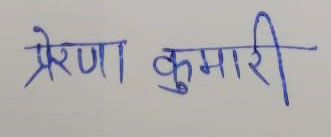 प्रेरणा कुमारी